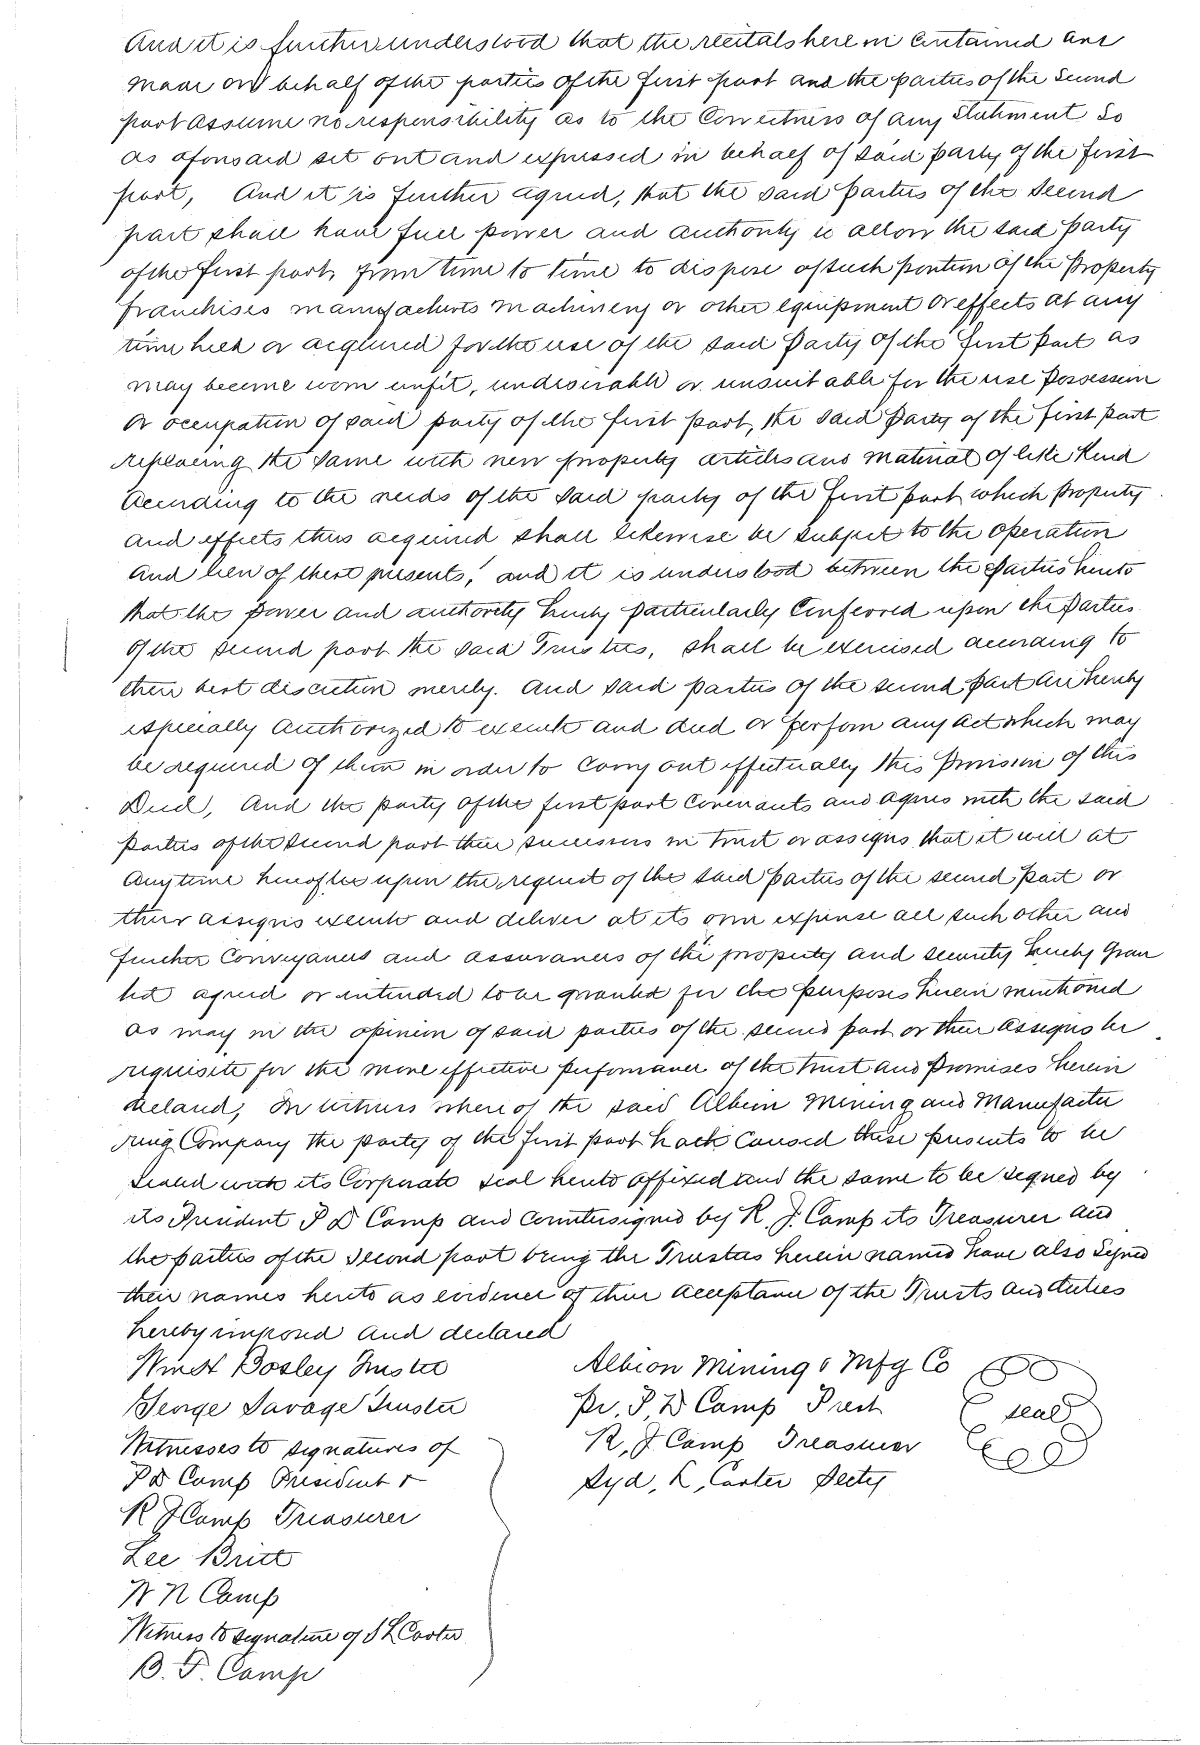 And it is further understood that the recitals here in Contained are
made on behalf of the parties of the first part and the parties of the second
part assume no responsibility as to the Correctness of any Statement So
as aforesaid set out and expressed in behalf of said party of the first
part, And it is further agreed, that the said parties of the second
part shall have full power and authority to allow the said party
of the first part, from time to time to dispose of such portion of the property
franchises manufactures machinery or other equipment or effects at any
time held or acquired for the use of the said party of the first part as
may become worn unfit, undesirable or unsuitable for the use possession
or occupation of said party of the first part, the said party of the first part
replacing the same with new property articles and material of like Kind
According to the needs of the said party of the first part which property
and effects thus acquired shall likewise be subject to the operation
and lien of these presents, and it is understood between the parties hereto
that the power and authority hereby particularly Conferred upon the parties
of the second part the said Trustees, shall be exercised according to
their best discretion merely. And said parties of the second part are hereby
especially authorized to execute and deed or perform any act which may
be required of them in order to Carry out effectually this provision of this
Deed, And the party of the first part Covenants and agrees with the said
parties of the second part their successors in trust or assigns that it will at
any time hereafter upon the request of the said parties of the second part or
their assigns execute and deliver at its own expense all such other and
further Conveyances and assurances of the property and security hereby gran
ted agreed or intended to be granted for the purposes herein mentioned
as may in the opinion of said parties of the second part or their assigns be
requisite for the more effective performance of the trust and promises herein
declared, In witness where of the said Albion Mining and Manufactu
ring Company the party of the first part hath Caused these presents to be
Sealed with its Corporate seal hereto affixed and the same to be signed by
its President P D Camp and countersigned by R. J. Camp its Treasurer and
the parties of the second part being the Trustees herein named have also signed
their names hereto as evidence of their acceptance of the Trusts and duties
hereby imposed and declared
Wm H Bosley Trustee Albion Mining & Mfg Co
George Savage Trustee Pr. P. D Camp Prest seal
Witnesses to signatures of R. J. Camp Treasurer
P D Camp President & Syd. L. Carter Secty
R J Camp Treasurer
Lee Britt
W N Camp
Witness to signature of S L Carter
B. F. Camp